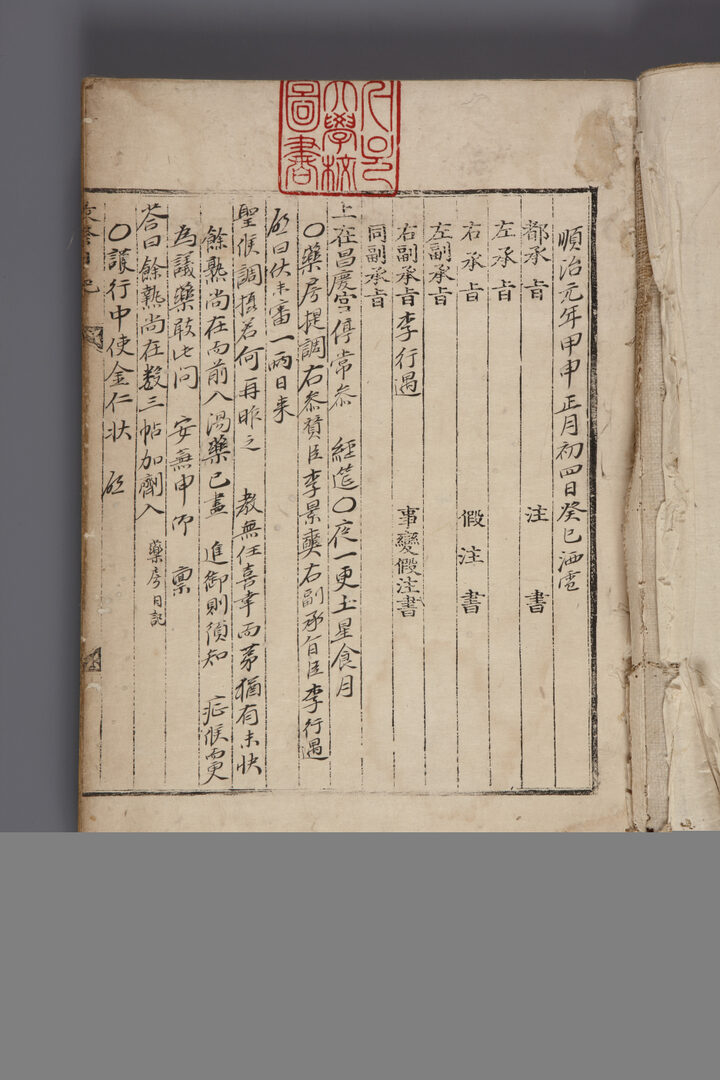 서울大學校圖書
順治元年甲申正月初四日癸巳洒
都承旨 注書
左承旨
右承旨 假注書
左副承旨
右副承旨李行遇 事變假注書
同副承旨
上在昌慶宮停常參 經筵〇夜一更土星食月
〇藥房提調右參贊臣李景奭右副承旨臣李行遇
啓曰伏未審一兩日來
聖候調攝若何再昨之 敎無任喜幸而第猶有未快
餘熱尚在而前入湯藥已盡 進御則須知 症候更
為議藥敢此問 安無申 稟
答曰餘熱尚在數三帖加劑入 藥房日記
〇護行中使金仁狀 啓